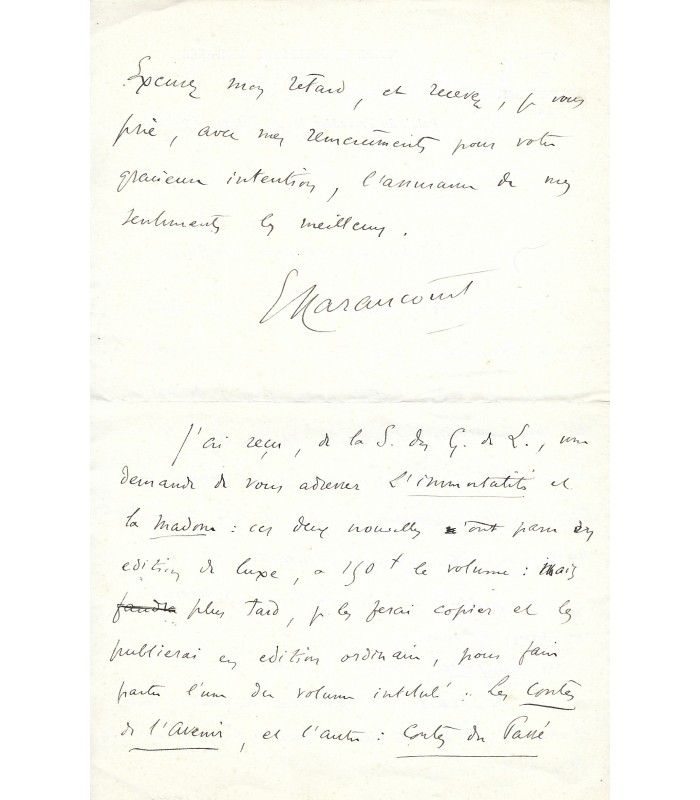 Excusez mon retard, et recevez, je vous
prie, avec mes remerciements pour votre
gracieuse intention, l'assurance de mes
sentiments les meilleurs.
EHaraucourt
J'ai reçu, de la S. des G. de L., une
demande de vous adresser L'immortalité et
la Madone : ces deux nouvelles n'ont paru qu'en
edition de luxe, a 150 f le volume : Mais
plus tard, je les ferai copier et les
publierai en edition ordinaire, pour faire
partie l'une du volume intitulé : Les Contes
de l'Avenir, et l'autre : Contes du Passé